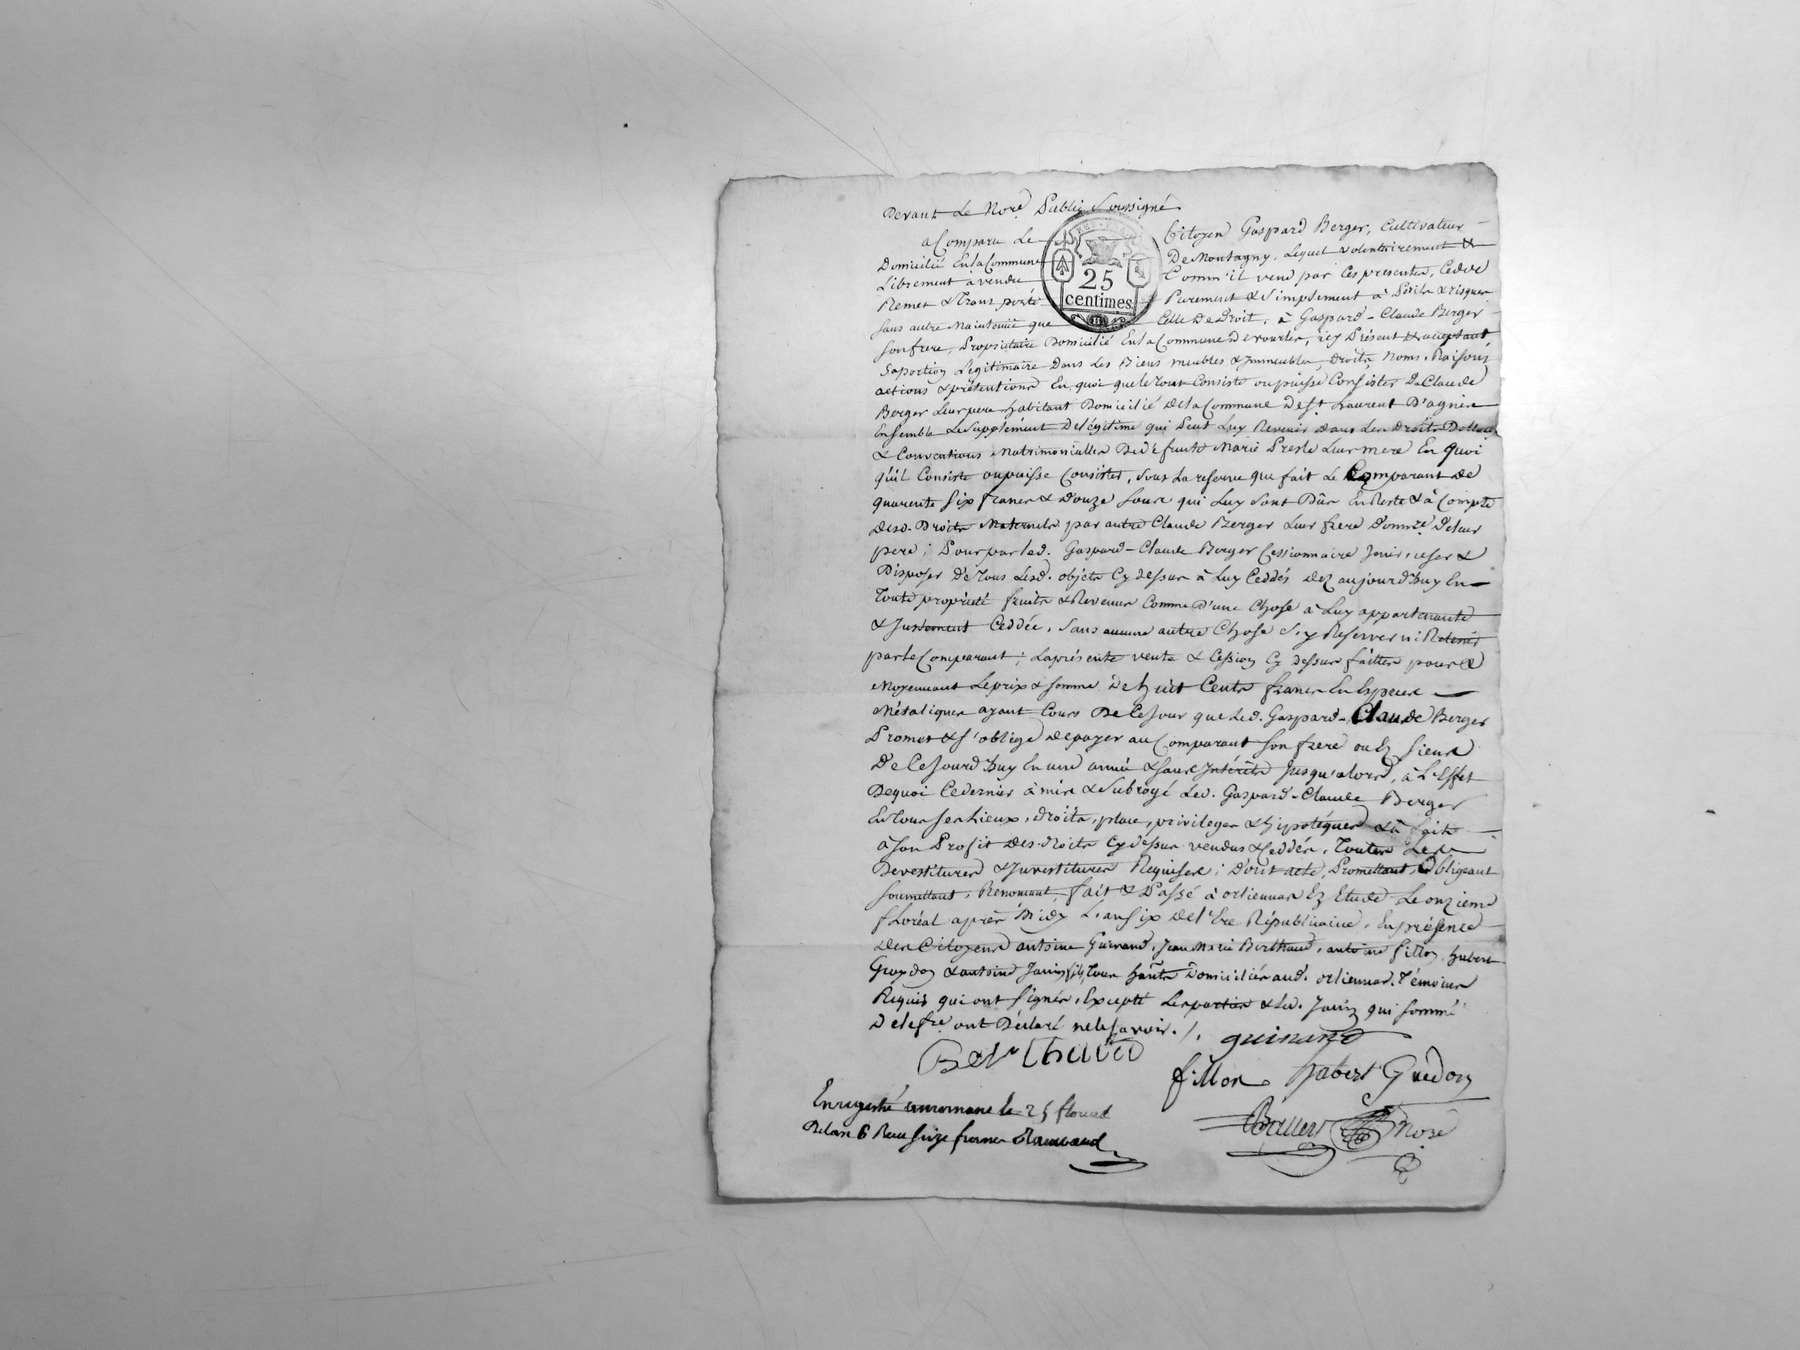 Devant Le No.re Public Soussigné
a Comparu Le Citoyen Gaspard Berger, Cultivateur
Domicilié En la Commune De Montagny, Lequel volontairement &
Librement a vendu Comm'il vend par Ces presentes, Cedde
Remet & Transporte Purement & Simplement à Périls & risques
Sans autre Maintenüe que Celle De Droit, à Gaspard-Claude Berger
25
centimes
Son frere, Propriétaire Domicilié En la Commune De vourles, icy Présent & acceptant,
Saportion Légitimaire Dans Les Biens meubles & Immeubles, Droits, Noms, Raisons
actions & prétentions En quoi que le tout Consiste ou puisse Consister De Claude
Berger Leur pere habitant Domicilié De la Commune De St Laurent D'agnin
Ensemble Le Supplément De légitime qui Peut Luy Revenir Dans Les Droits
& Conventions Matrimonialles De Défunte Marie Presle Leur mere En Quoi
qu'il Consiste ou puisse Consister, Sous La reserve que fait Le Comparant De
quarente Six francs & Douze Sous qui Luy Sont Dûs En Reste & à Compte
Desd. Droits Maternels par autre Claude Berger Leur frere De leur
pere; Pour par led. Gaspard-Claude Berger Cessionnaire Jouir, user &
Disposer De Tous Lesd. objets Cy dessus à Luy Ceddés dez aujourd'huy En
Toute propriété fruits & Revenus Comme D'une Chose à Luy appartenante
& Justement Ceddée, Sans aucune autre Chose S'y Reserver ni Retenir
par le Comparant; La présente vente & Cession Cy dessus faitte pour &
Moyennant Le prix & Somme De huit Cents francs En Especes
Métaliques ayant Cours De Ce Jour que Led. Gaspard-Claude Berger
Promet & S'oblige De payer au Comparant Son frere ou Ez Siens
De Ce Jourd'huy En une année & Sans Intérêts Jusqu'alors, à L'Effet
De quoi Ce dernier à mis & Subrogé Led. Gaspard-Claude Berger
En Tous Ses Lieux, Droits, place, privileges & hipotéques & à fait
à Son Profit Des Droits Cy dessus vendus & Ceddés, Toutes Les
Devestitures & Investitures Requises; Dont acte, Promettant, Obligeant
Soumettant, Renonçant, fait & Passé à orliennas Ez Etude Le onzieme
fLoréal après Midy L'an Six De l'Ere Républicaine, En présence
Des Citoyens antoine Guinand, Jean Marie Berthaud, antoine fillon, hubert
& antoine Tous Domiciliés aud. orliennas, Témoins
Réquis qui ont Signés, Excepté Les parties & Led. qui Sommé
De le fre ont Déclaré ne le Savoir./.
guinand
Berthaud
fillon hubert Guedon
Noré
Enregistré a mornant le 25 floreal
De lan 6 Recu Seize francs